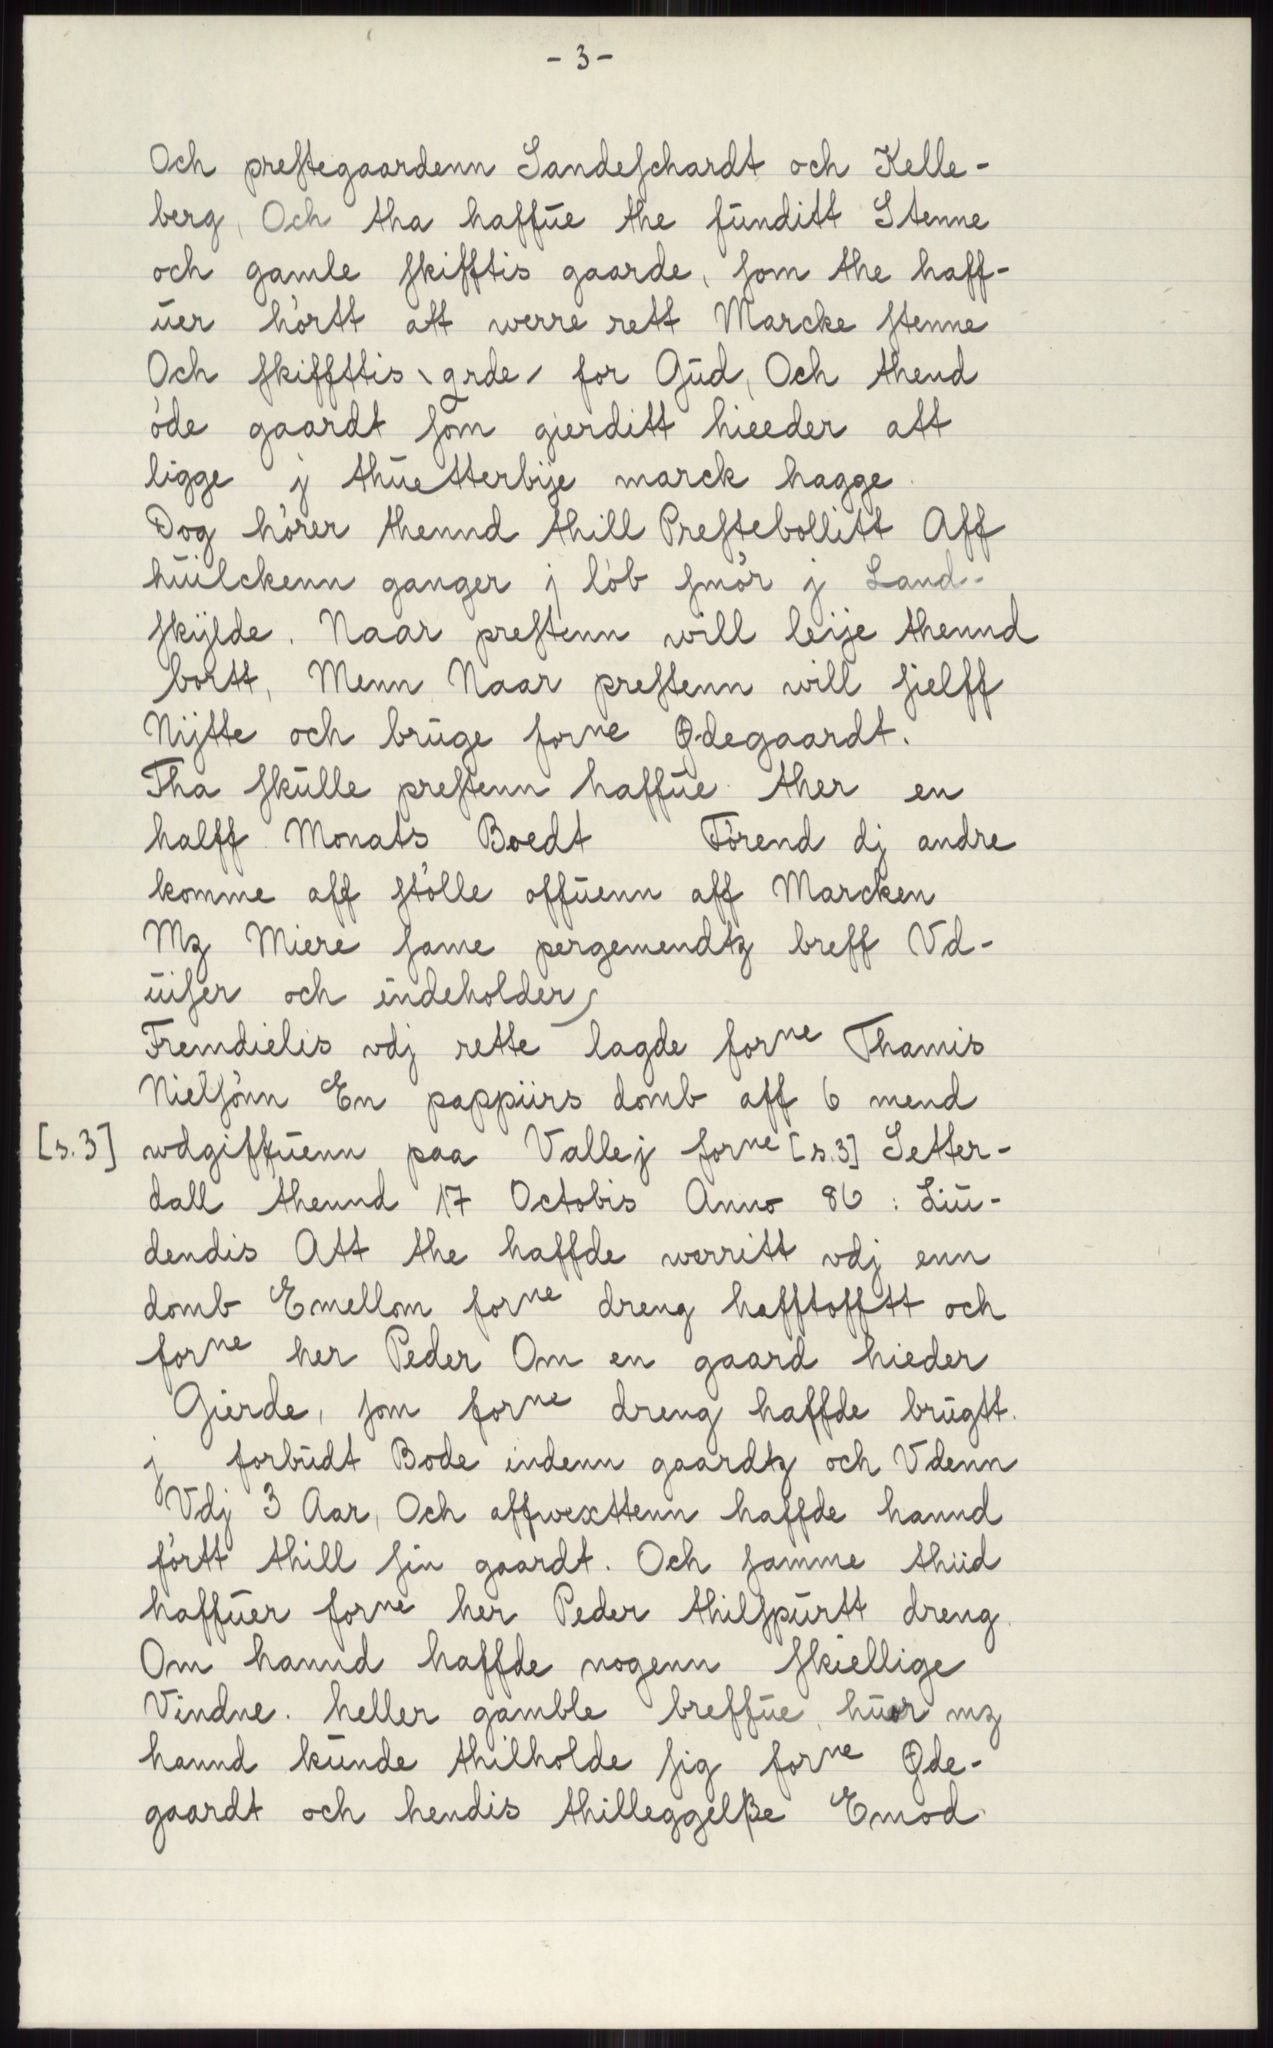 - 3 -
Och prestegaardenn Sandeschardt och Kelle-
berg, Och tha haffůe the fůnditt Stenne
och gamle skifftis gaarde, som the haff-
ůer hórtt att werre rett Marcke stenne
Och skiffttis \ grde / for Gůd, Och thend
óde gaardt som gierditt hieeder att
ligge j thůetterbÿe marck hagge.
Dog hórer thennd thill Prestebollitt Aff
hůilckenn ganger j lób smór j Land-
skÿlde. Naar prestenn will leije thennd
bortt, Menn Naar prestenn will sielff
Nÿtte och brůge forne Ødegaardt.
Tha skůlle prestenn haffůe ther en
halff Monats Boedt Fórend dj andre
komme aff stólle offůenn aff Marcken
Mz Miere same pergemendtz breff Vd-
ůiser och indeholder,
Fremdielis vdj rette lagde forne Thamis
Nielsónn En pappiirs domb aff 6 mend
[s.3] wdgiffůenn paa Vallej forne [s.3] Setter-
dall thennd 17 Octobis Anno 86 : Liů-
dendis Att the haffde werritt vdj enn
domb Emellom forne dreng hafftofftt och
forne her Peder Om en gaard hieder
Gierde, som forne dreng haffde brůgtt.
j forbůdt Bode indenn gaardtz och Vdenn
Vdj 3 Aar, Och affwexttenn haffde hannd
fórtt thill sin gaardt. Och samme thiid
haffůer forne her Peder thilspůrtt dreng.
Om hannd haffde nogenn skiellige
Vindne. heller gamble breffůe, hůor mz
hannd kůnde thilholde sig forne Øde-
gaardt och hendis thilleggelße Emod